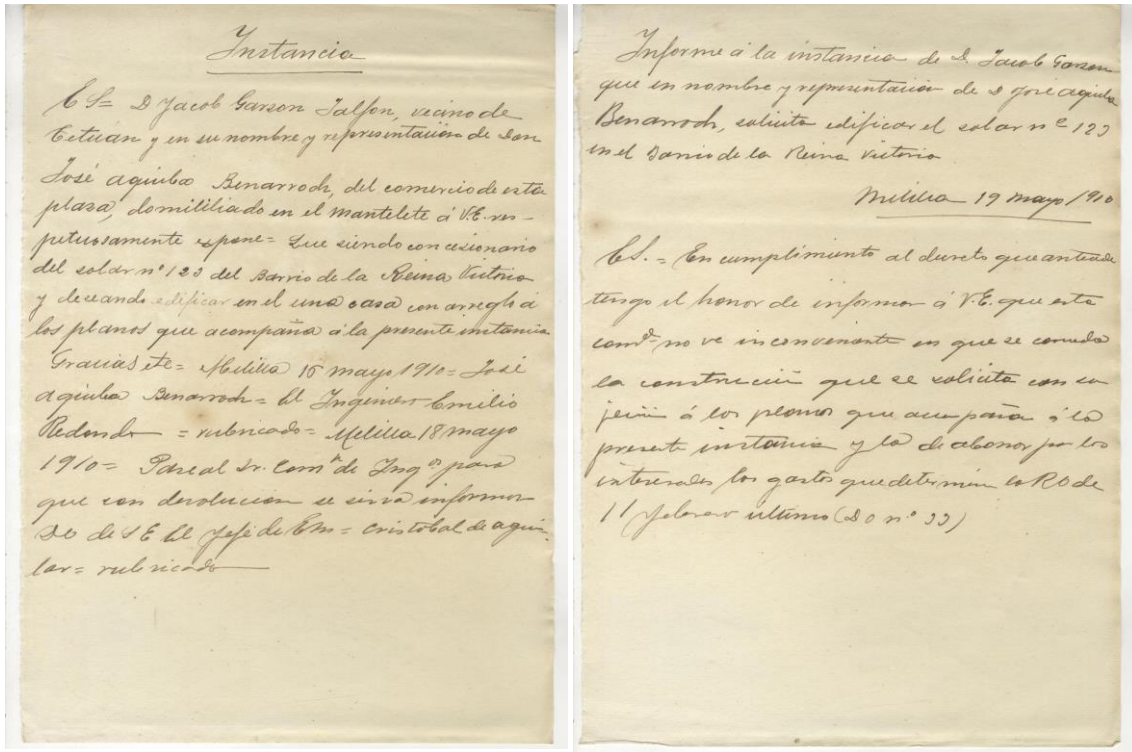 Instancia
ES= D Jacob Garson Jalfon, vecino de
Tetuán y en su nombre y representación de Don
José aquiba Benarroch, del comercio de esta
plaza, domililiado en el mantelete á V.E. res-
petuosamente espone= Que siendo concesionario
del solar nº 123 del Barrio de la Reina Victoria
y deseando edificar en el una casa con arreglo á
los planos que acompaña á la presente instancia
Gracias etc= Melilla 15 mayo 1910= José
aquiba Benarroch= El Ingeniero Emilio
Redondo = rubricado= Melilla 18 mayo
1910= Pase al Sr. Comte de Ingos para
que con devolucion se sirva informar
DO de SE El Jefe de EM= Cristobal de agui-
lar= rubricado
Informe á la instancia de D. Jacob Garson
que en nombre y representación de D José aquiba
Benarroch, solicita edificar el solar nº 123
en el Barrio de la Reina Victoria
Melilla 19 mayo 1910
ES.= En cumplimiento al decreto que antecede
tengo el honor de informar á V.E. que esta
comda no ve inconveniente en que se conceda
la construcción que se solicita con su
jeción á los planos que acompaña á la
presente instancia y la de abonar por los
interesados los gastos que determina la RO de
11 febrero ultimo (DO nº 33)